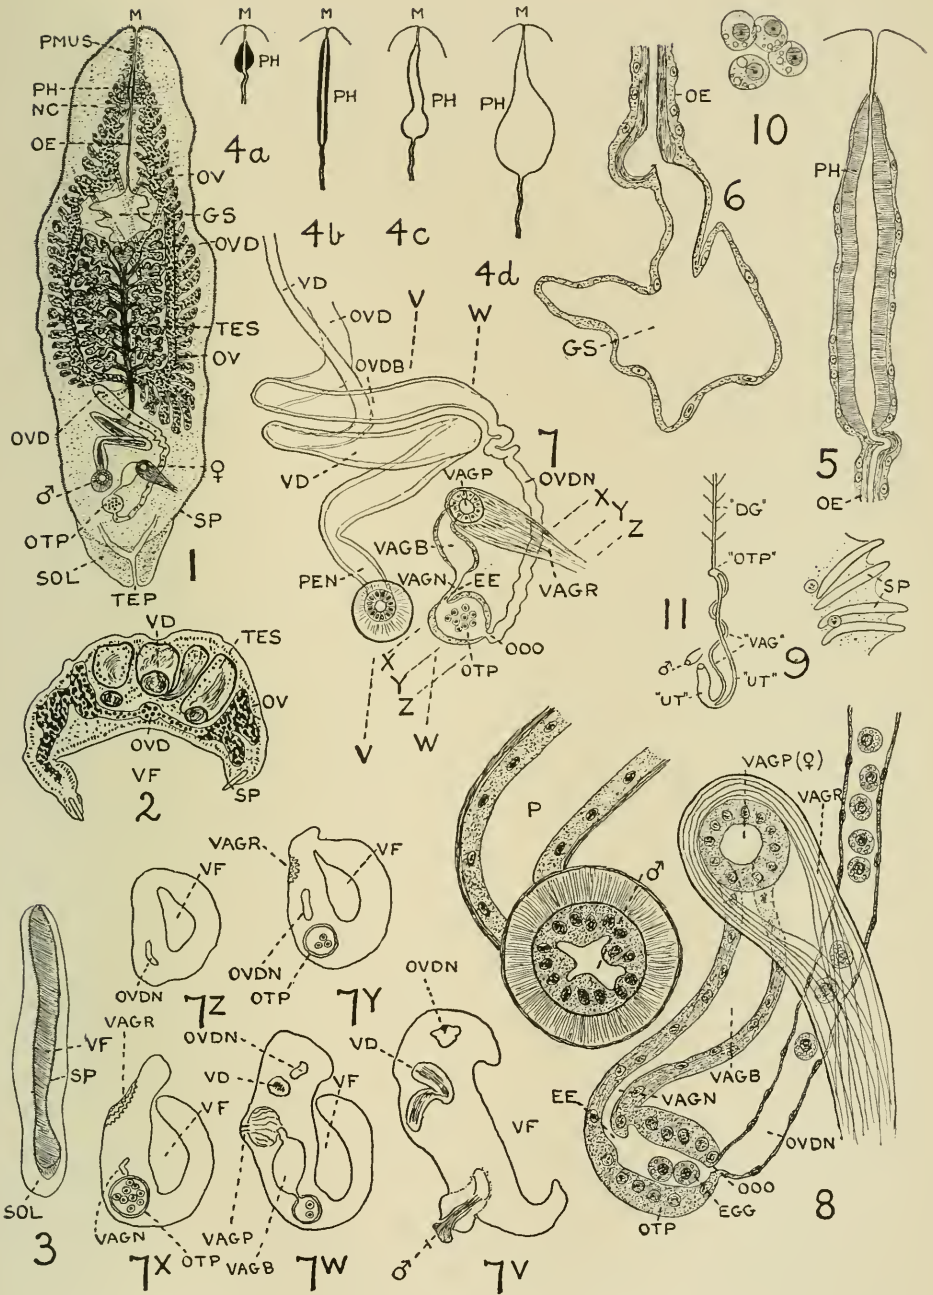 M
PMUS
PH
NC
OE
OV
GS
OVD
TES
OV
OVD
♂
♀
OTP
SP
SOL
TEP
1
M
PH
4a
M
PH
4b
M
PH
4c
M
PH
4d
OE
GS
6
10
PH
OE
5
VD
OVD
V
W
OVDB
VD
7
VAGP
OVDN
X
Y
Z
VAGB
PEN
VAGN
EE
VAGR
OOO
OTP
X
Y
Z
V
W
"DG"
"OTP"
11
"VAG"
♂
"UT"
"UT"
SP
9
VD
TES
OV
OVD
VF
SP
2
VF
SP
SOL
3
VF
OVDN
7Z
VAGR
VF
OVDN
OTP
7Y
VAGR
VF
VAGN
OTP
7X
OVDN
VD
VF
VAGP
VAGB
7W
OVDN
VD
VF
♂
7V
P
♂
VAGP(♀)
VAGR
VAGB
EE
VAGN
OVDN
OOO
EGG
OTP
8